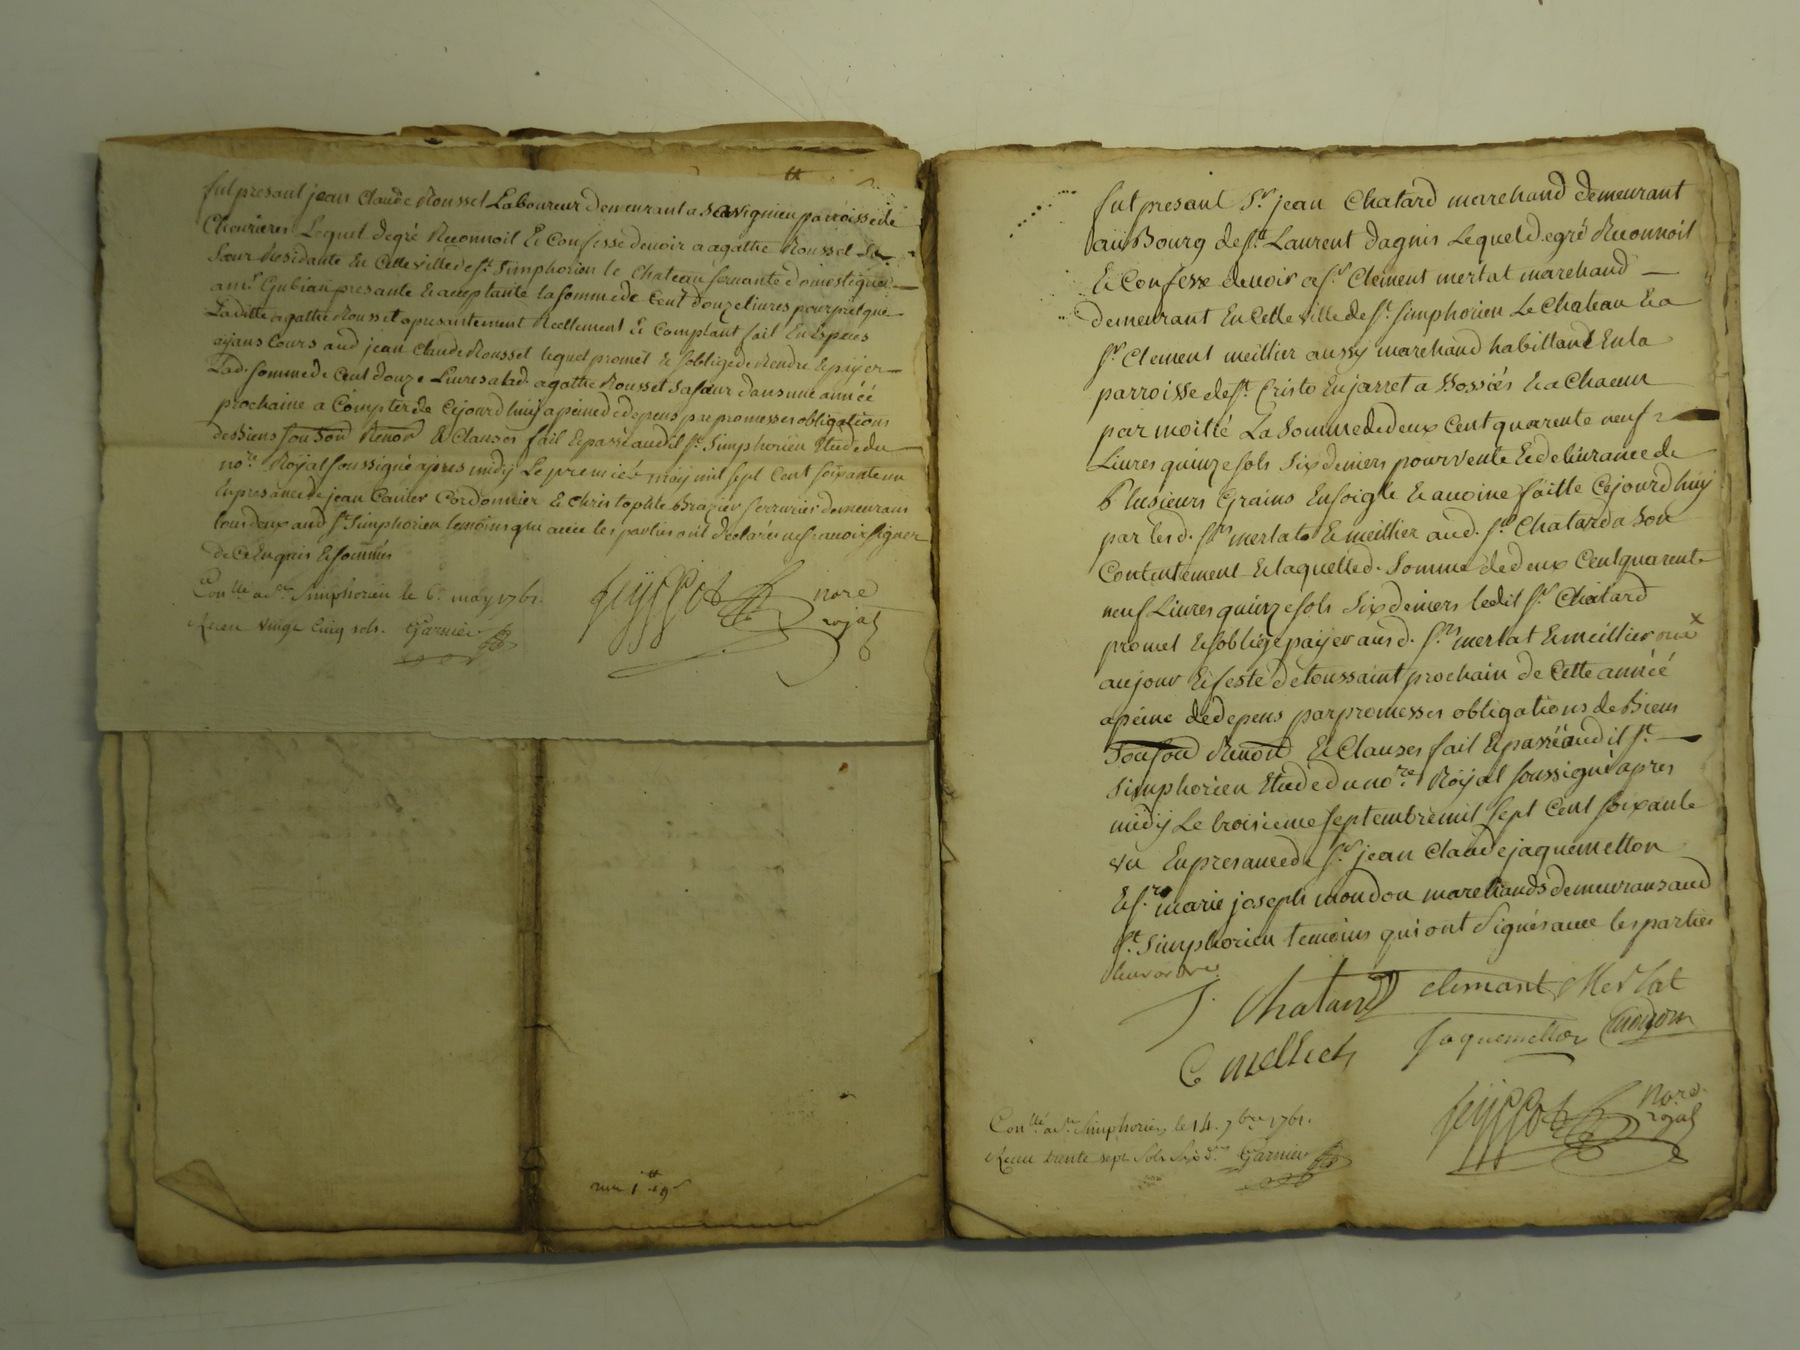 fut presant jean Claude Rousset Laboureur demeurant a Savignieu parroisse de
Chevrieres Lequel de gré Reconnoit Et Confesse devoir a agathe Rousset Sa
Sœur Residante En Cette ville de St. Simphorien le Chateau servante domestique
Gubian presante Et acceptante la somme de Cent douze livres pour prêt que
Laditte agathe Rousset a presantement Reellement Et Comptant fait En Especes
ayans Cours aud jean Claude Rousset lequel promet Et s'oblige de Rendre Et payer
Lad. somme de Cent douze Livres a lad. agathe Rousset sa sœur dans une année
prochaine a Compter de Cejourdhuy a peine de depens par promesses obligations
de Biens sou sou Renon Et Clauses fait Et passé audit St. Simphorien Etude du
nore. Roÿal soussigné apres midy Le premier may mil sept Cent soixante un
En presance de jean Cordonnier Et Christophle Brazier serrurier demeurans
tous deux aud St. Simphorien temoins qui avec les parties ont declarés ne sçavoir signer
de Ce Enquis Et sommés
Conllé a St Simphorien le 6e may 1761.
Receu vingt Cinq sols. Garnier
nore
royal
fut presant Sr. jean Chatard marchand demeurant
au Bourg de St. Laurent dagnis Lequel de gré Reconnoit
Et Confesse devoir a Sr. Clement mertat marchand
demeurant En Cette ville de St. Simphorien Le Chateau Et a
Sr. Clement meillier aussy marchand habittant En la
parroisse de St. Cristo En jarret a Bossiés Et a Chacun
par moitié La Somme de deux Cent quarente neuf
Livres quinze sols Six deniers pour vente Et delivrance de
Plusieurs Grains En soigle Et avoine faitte Cejourdhuy
par lesd. Srs mertat Et meillier aud. Sr. Chatard a Son
Contentement Et laquelle d. Somme de deux Cent quarente
neuf Livres quinze sols Six deniers ledit Sr. Chatard
promet Et s'oblige payer ausd. Srs. mertat Et meillier
au jour Et feste de toussaint prochain de Cette année
a peine de depens par promesses obligations de Biens
sou sou Renon Et Clauses fait Et passé audit St.
Simphorien Etude du nore. Roÿal soussigné apres
midy Le troisieme septembre mil sept Cent soixante
un En presance de Sr. jean Claude jaquemetton
Et Sr. marie joseph mondon marchands demeurans aud
St. Simphorien temoins qui ont Signés avec les parties
J. Chatard clemant Mertat
C meillier Jaquemetton mondon
nore.
royal
Conllé a St Simphorien, le 14. 7bre 1761.
Receu trente sept Sols Six drs Garnier